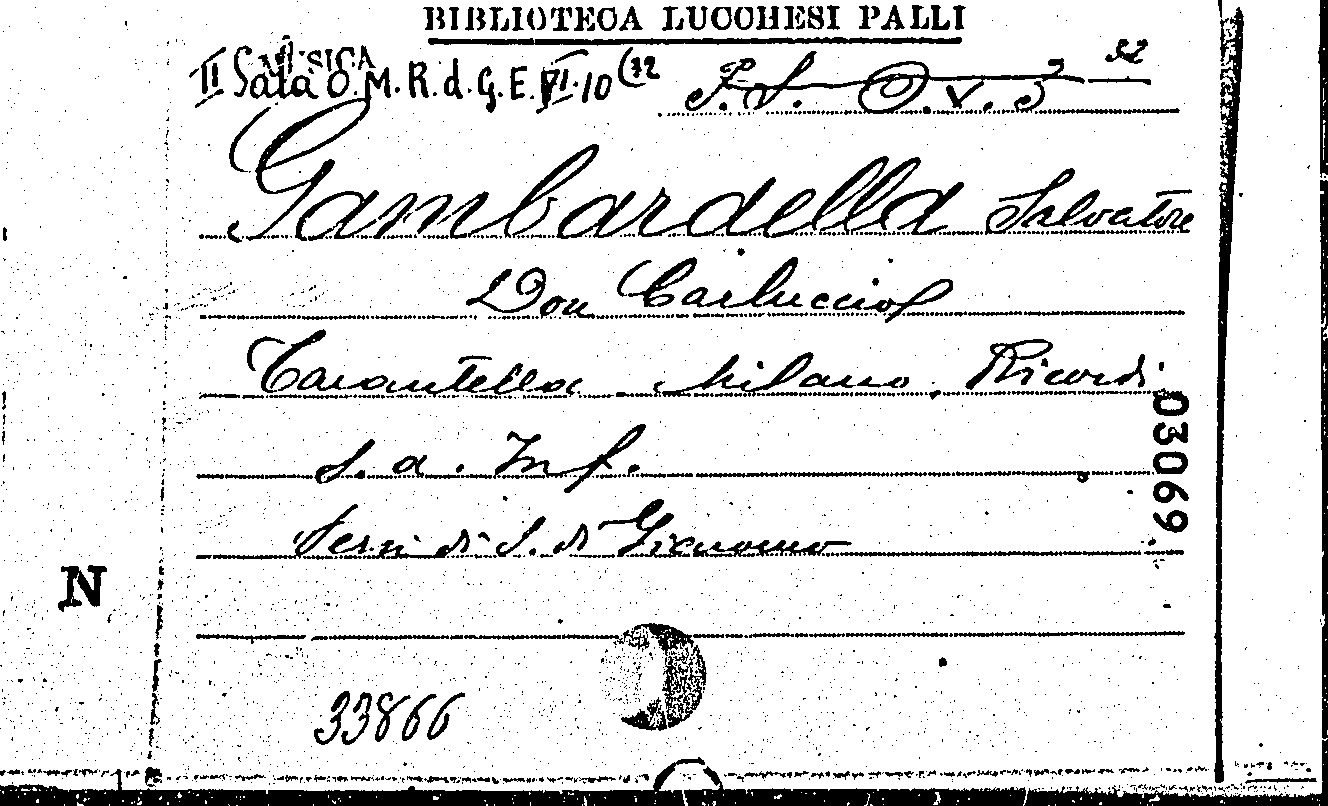 BIBLIOTECA LUCCHESI PALLI
MUSICA
II Sala O. M. R. d. G. E. VI. 10 (32
P. S. O. V. 3 32
Gambardella Salvatore
Don Carluccio
Tarantella Milano, Ricordi
s. a. In f.
Versi di S. di Giacomo
03069
N
33866